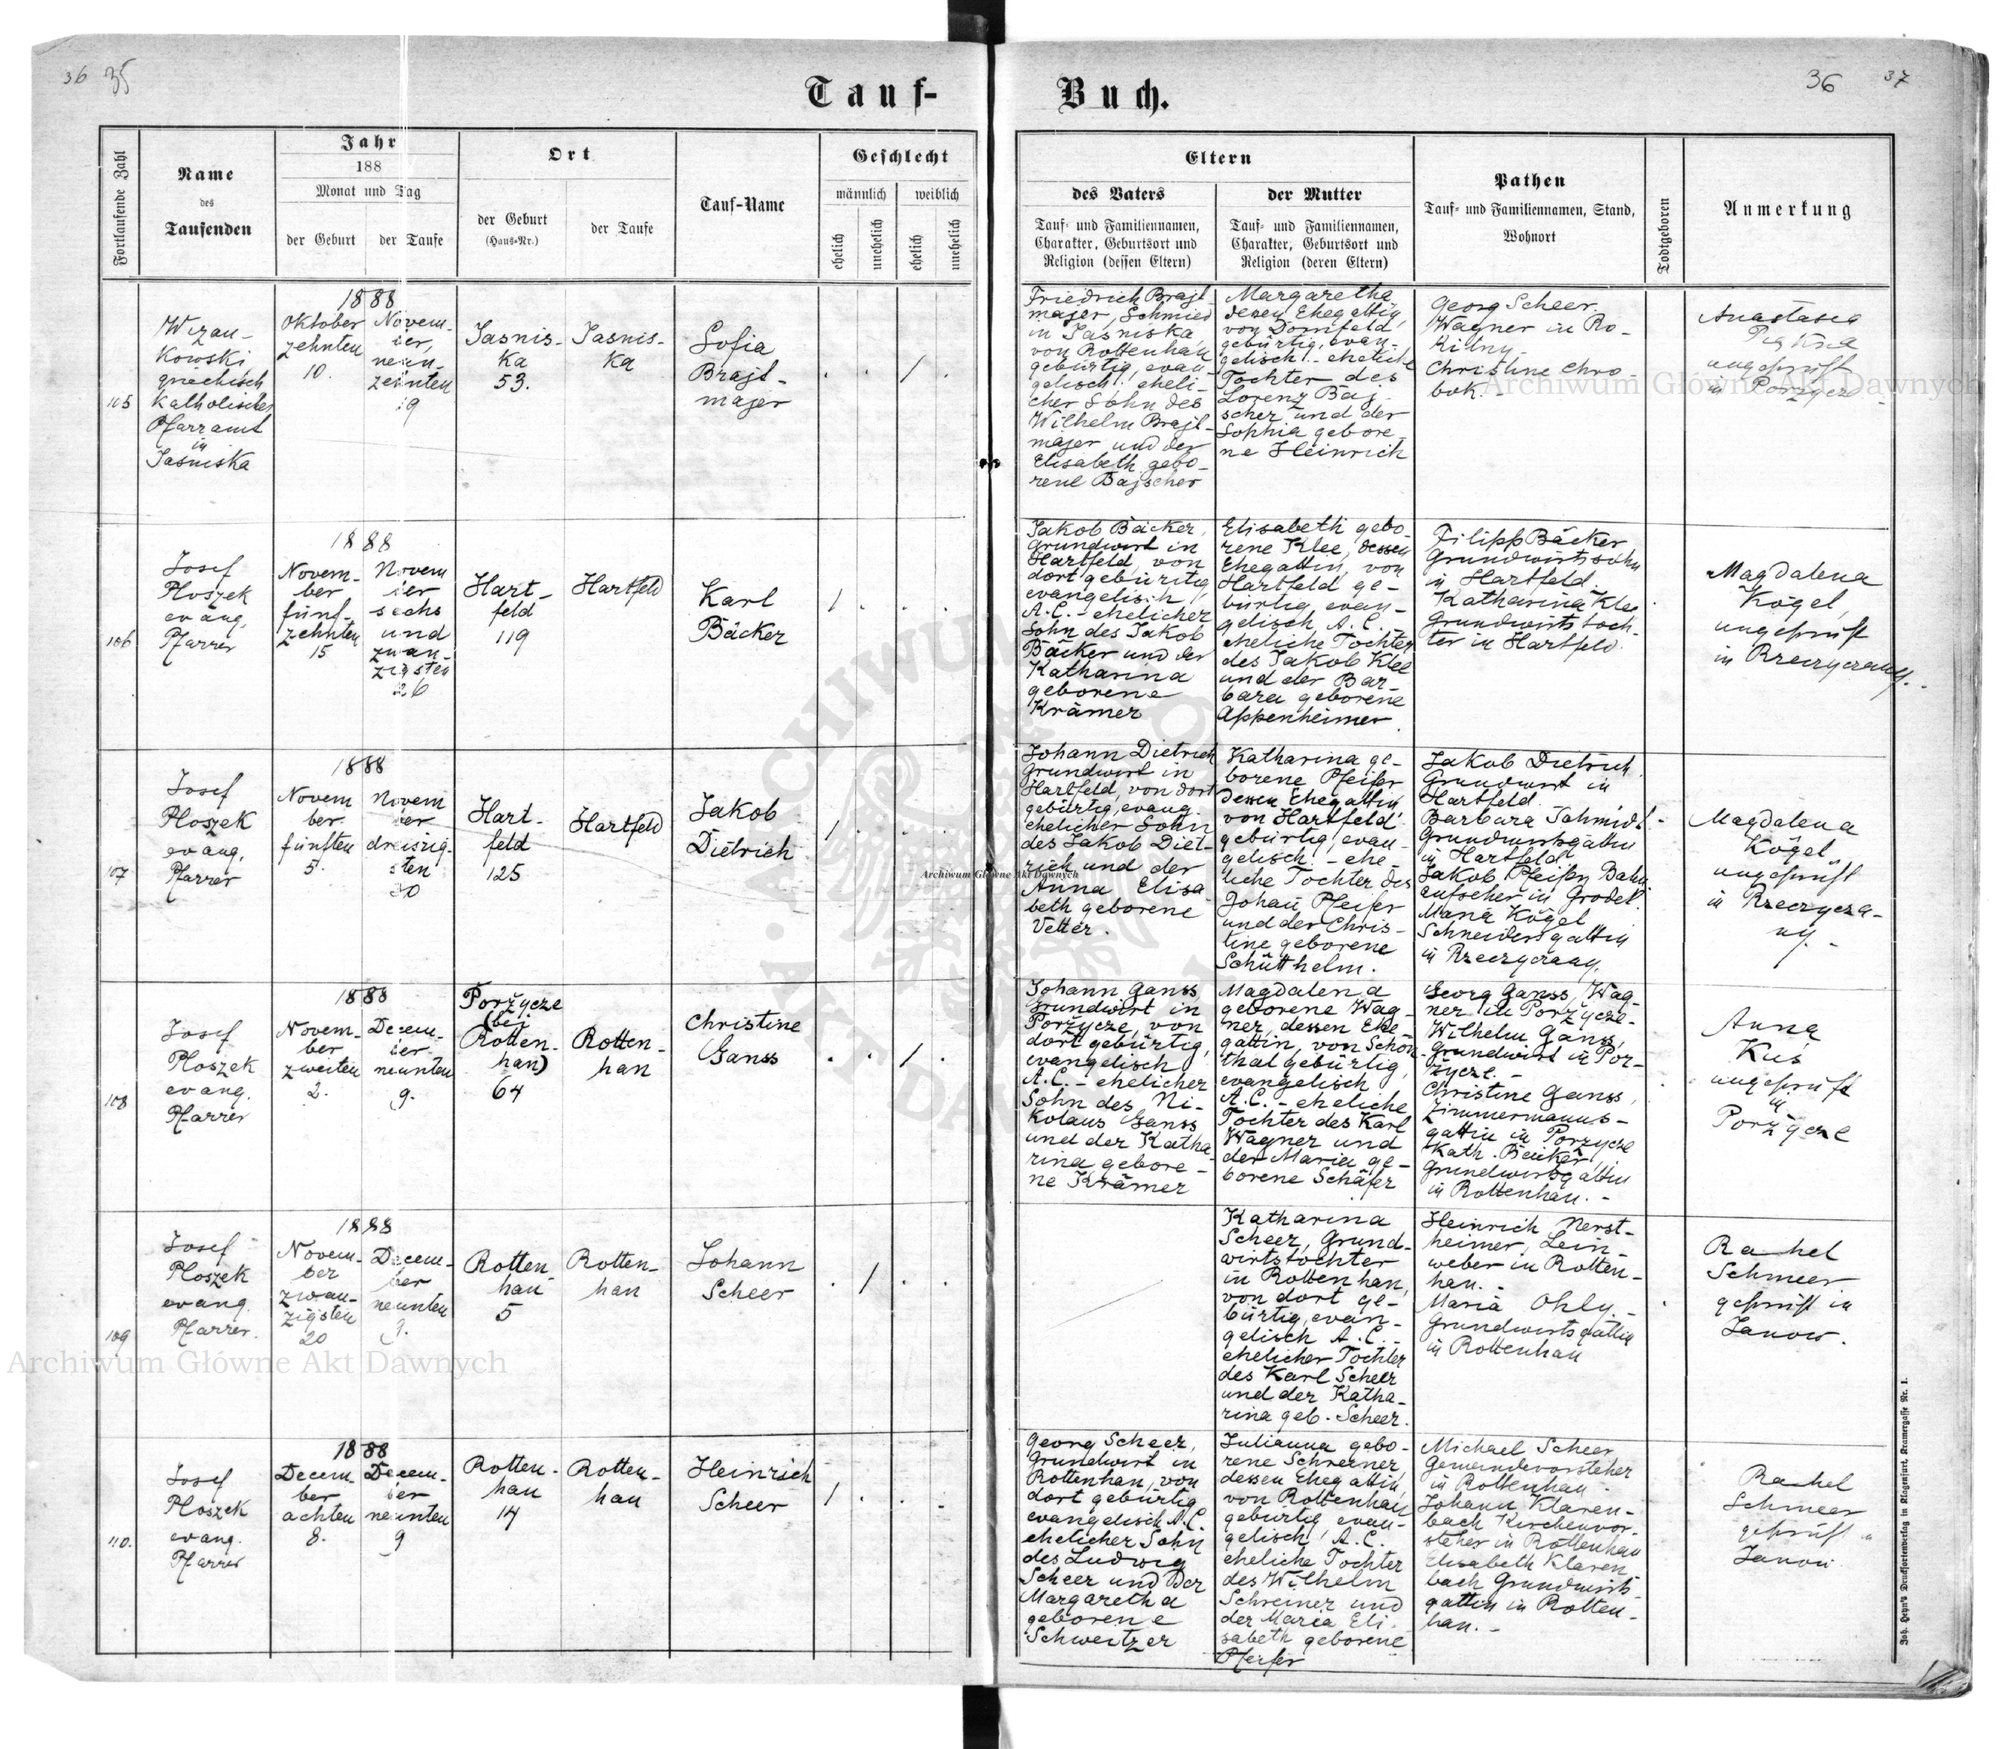 36 35
36 37
Tauf-
Buch.
Fortlaufende Zahl
Name
des
Taufenden
Jahr
188
Monat und Tag
der Geburt
der Taufe
Ort
der Geburt
(Haus-Nr.)
der Taufe
Tauf-Name
Geschlecht
männlich
weiblich
ehelich
unehelich
ehelich
unehelich
Eltern
des Vaters
Tauf- und Familiennamen,
Charakter, Geburtsort und
Religion (dessen Eltern)
der Mutter
Tauf- und Familiennamen,
Charakter, Geburtsort und
Religion (deren Eltern)
Pathen
Tauf- und Familiennamen, Stand,
Wohnort
Todtgeboren
Anmerkung
105
Wizan-
kowski
griechisch
katholisches
Pfarramt
in
Jasniska
1888
Oktober
zehnten
10.
Novem-
ber,
neun-
zehnten
19
Jasnis-
ka
53.
Jasnis-
ka
Sofia
Brajt-
majer
Friedrich Brajt-
majer, Schmied
in Jasniska,
von Rottenhan
gebürtig, evan-
gelisch! eheli-
cher Sohn des
Wilhelm Brajt-
majer und der
Elisabeth gebo-
rene Bajscher
Margaretha
deren Ehegattin,
von Dornfeld
gebürtig, evan-
gelisch! - eheliche
Tochter des
Lorenz Baj-
scher und der
Sophia gebore-
ne Heinrich
Georg Scheer
Wagner in Ro-
kitny
Christine Chro-
bok. -
Anastasia
ungeprüft
in Porzycze
106
Josef
Ploszek
evang.
Pfarrer
1888
Novem-
ber
fünf-
zehnten
15
Novem
ber
sechs
und
zwan-
zigsten
26
Hart-
feld
119
Hartfeld
Karl
Bäcker
Jakob Bäcker,
Grundwirt in
Hartfeld, von
dort gebürtig,
evangelisch
A.C. - ehelicher
Sohn des Jakob
Bäcker und der
Katharina
geborene
Krämer
Elisabeth gebo-
rene Klee, dessen
Ehegattin, von
Hartfeld ge-
bürtig, evan-
gelisch A.C. -
eheliche Tochter
des Jakob Klee
und der Bar-
bara geborene
Appenheimer
Filipp Bäcker
Grundwirtssohn
in Hartfeld.
Katharina Klee
Grundwirtstoch-
ter in Hartfeld.
Magdalena
Kögel,
ungeprüft
in Rzeczyczany.
107
Josef
Ploszek
evang.
Pfarrer
1888
Novem
ber
fünften
5.
Novem
ber
dreisig-
sten
30
Hart-
feld
125
Hartfeld
Jakob
Dietrich
Johann Dietrich
Grundwirt in
Hartfeld, von dort
gebürtig, evang.
ehelicher Sohn
des Jakob Diet-
rich und der
Anna Elisa
beth geborene
Vetter.
Katharina ge-
borene Pfeifer
deren Ehegattin,
von Hartfeld
gebürtig, evan-
gelisch! - ehe-
liche Tochter des
Johan Pfeifer
und der Chris-
tine geborene
Schütthelm.
Jakob Dietrich
Grundwirt in
Hartfeld.
Barbara Schmidt
Grundwirtsgattin
in Hartfeld
Jakob Pfeifer Bahn
aufseher in Grodek.
Maria Kögel
Schneidersgattin
in Rzeczyczany.
Magdalena
Kögel
ungeprüft
in Rzeczycza-
ny. -
108
Josef
Ploszek
evang.
Pfarrer
1888
Novem-
ber
zweiten
2.
Decem-
ber
neunten
9.
Poržycze
(bei
Rotten-
han)
64
Rotten-
han
Christine
Ganss
Johann Ganss
Grundwirt in
Poržycze, von
dort gebürtig,
evangelisch
A.C. - ehelicher
Sohn des Ni-
kolaus Ganss
und der Katha-
rina gebore-
ne Krämer
Magdalena
geborene Wag-
ner, dessen Ehe-
gattin, von Schön-
thal gebürtig,
evangelisch
A.C. - eheliche
Tochter des Karl
Wagner und
der Maria ge-
borene Schäfer
Georg Ganss, Wag-
ner in Poržycze.
Wilhelm Ganss,
Grundwirt in Por-
žycze. -
Christine Ganss,
Zimmermanns-
gattin in Porzycze
Kath. Bäcker
Grundwirtsgattin
in Rottenhan. -
Anna
Kuś
ungeprüft
in
Poržycze
109
Josef
Ploszek
evang.
Pfarrer.
1888
Novem-
ber
zwan-
zigsten
20
Decem-
ber
neunten
9.
Rotten-
han
5
Rotten-
han
Johann
Scheer
Katharina
Scheer, Grund-
wirtstochter
in Rottenhan,
von dort ge-
bürtig, evan-
gelisch A.C. -
ehelicher Tochter
des Karl Scheer
und der Katha-
rina geb. Scheer.
Heinrich Nerst-
heimer, Lein-
weber in Rotten-
han. -
Maria Ohly. -
Grundwirtsgattin
in Rottenhan
Rachel
Schmeer
geprüft in
Janow.
110.
Josef
Ploszek
evang.
Pfarrer
1888
Decem
ber
achten
8.
Decem-
ber
neunten
9
Rotten-
han
14
Rotten-
han
Heinrich
Scheer
Georg Scheer,
Grundwirt in
Rottenhan, von
dort gebürtig
evangelisch A.C.
ehelicher Sohn
des Ludwig
Scheer und der
Margaretha
geborene
Schweitzer
Julianna gebo-
rene Schreiner
dessen Ehegattin,
von Rottenhan
gebürtig evan-
gelisch! A.C.
eheliche Tochter
des Wilhelm
Schreiner und
der Maria Eli-
sabeth geborene
Pfeifer
Michael Scheer
Gemeindevorsteher
in Rottenhan
Johann Klaren-
bach Kirchenvor-
steher in Rottenhan
Elisabeth Klaren
bach Grundwirts-
gattin in Rotten-
han. -
Rachel
Schmeer
geprüft in
Janow
Joh. Heyn's Drucksortenverlag in Klagenfurt, Kramergasse Nr. 1.
Archiwum Główne Akt Dawnych
Archiwum Główne Akt Dawnych
Archiwum Główne Akt Dawnych